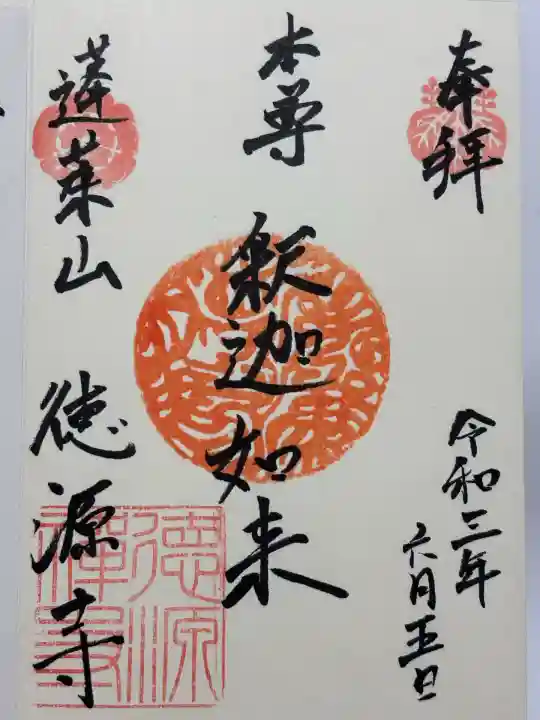 奉拝
令和三年
六月五日
本尊
釈迦如来
蓬莱山
徳源寺
徳源
禅寺